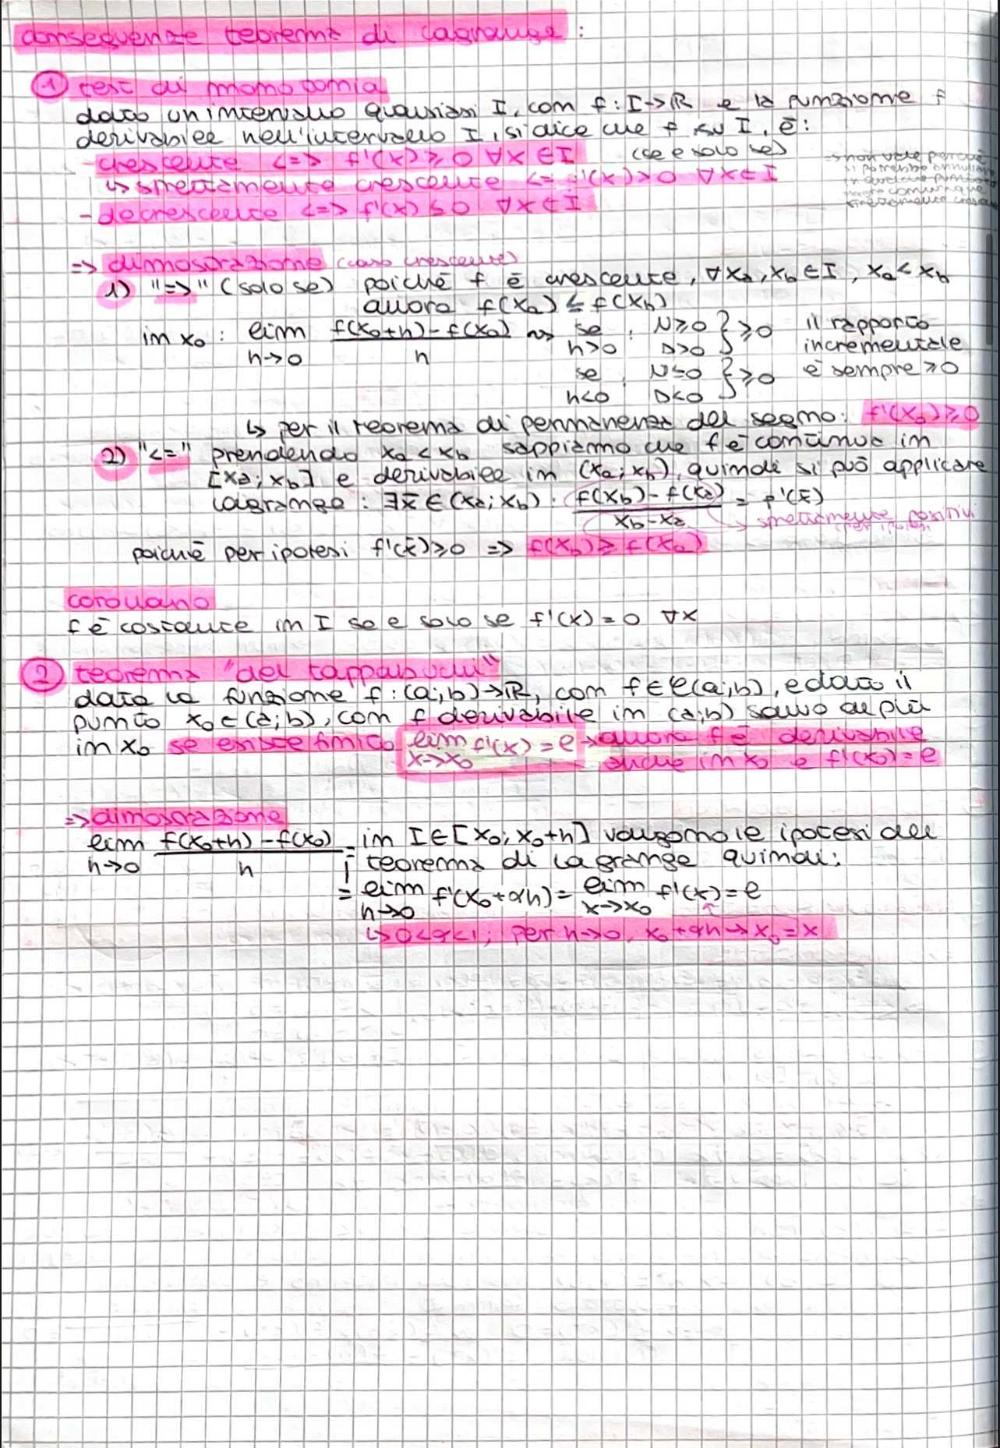 conseguenze teorema di Lagrange:
① test di monotonia
dato un intervallo qualsiasi I, con f: I→ℝ e la funzione f
derivabile nell'intervallo I, si dice che f su I, è:
- crescente <=> f'(x) ≥ 0 ∀x ∈ I (se e solo se)
↳ strettamente crescente <= f'(x) > 0 ∀x ∈ I
→ non vale perché
si potrebbe annullare
in qualche punto
ma comunque
strettamente
- decrescente <=> f'(x) ≤ 0 ∀x ∈ I
=> dimostrazione (caso crescente)
1) "=>" (solo se) poiché f è crescente, ∀xa, xb ∈ I, xa < xb
allora f(xa) ≤ f(xb)
in x₀: lim h→0 f(x₀+h)-f(x₀) / h ⇝ se h>0 : N≥0 D>0 } ≥0 il rapporto
se h<0 : N≤0 D<0 } ≥0 incrementale
è sempre ≥0
↳ per il teorema di permanenza del segno: f'(x₀) ≥ 0
2) "<=" prendendo xa < xb sappiamo che f è continua in
[xa; xb] e derivabile in (xa; xb), quindi si può applicare
Lagrange: ∃x̄ ∈ (xa; xb) : f(xb)-f(xa) / xb-xa = f'(x̄)
→ strettamente positivi
poiché per ipotesi f'(x̄) ≥ 0 => f(xb) ≥ f(xa)
corollario
f è costante in I se e solo se f'(x) = 0 ∀x
② teorema "del tappabuchi"
data la funzione f: (a;b)→ℝ, con f ∈ C(a;b), e dato il
punto x₀ ∈ (a;b), con f derivabile in (a;b) salvo al più
in x₀ se esiste finito lim x→x₀ f'(x) = l → allora f è derivabile
anche in x₀ e f'(x₀) = l
=> dimostrazione
lim h→0 f(x₀+h)-f(x₀) / h = in I ∈ [x₀; x₀+h] valgono le ipotesi del
teorema di Lagrange quindi:
= lim h→0 f'(x₀+αh) = lim x→x₀ f'(x) = l
↳ 0<α<1; per h→0, x₀+αh → x₀ = x